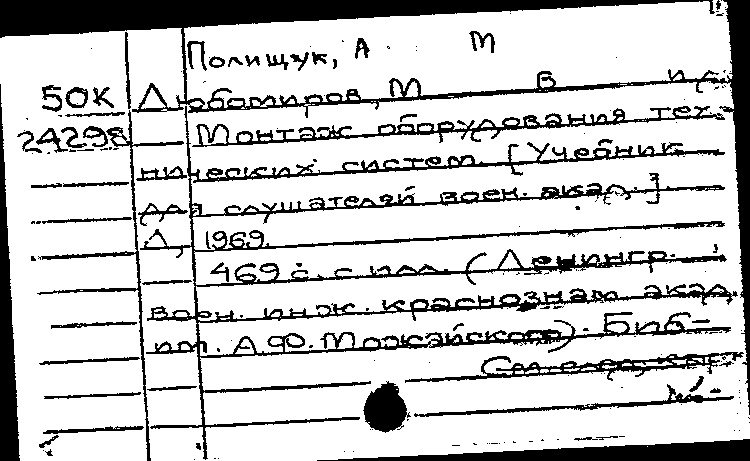 Полищук, А М
50К Любомиров, М В и др.
24298 Монтаж оборудования тех-
нических систем. [Учебник
для слушателей воен. акад.]
Л, 1969.
469 с. с илл. (Ленингр.
воен. инж. краснознам акад.
им. А.Ф. Можайского). Биб-
См. след. карт